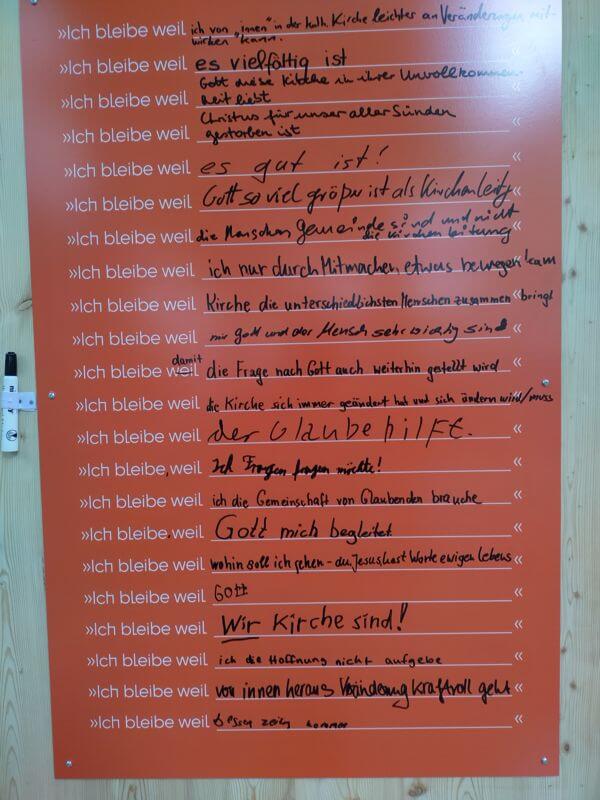 »Ich bleibe weil ich von "innen" in der kath. Kirche leichter an Veränderungen mit-
wirken kann.
»Ich bleibe weil es vielfältig ist «
Gott diese Kirche in ihrer Unvollkommen-
»Ich bleibe weil heit liebt «
Christus für unser aller Sünden
»Ich bleibe weil gestorben ist «
»Ich bleibe weil es gut ist! «
»Ich bleibe weil Gott so viel größer ist als Kirchenleitg «
»Ich bleibe weil die Menschen Gemeinde sind und nicht
die Kirchenleitung «
»Ich bleibe weil ich nur durch Mitmachen etwas bewegen kann «
»Ich bleibe weil Kirche die unterschiedlichsten Menschen zusammen bringt «
»Ich bleibe weil mir Gott und der Mensch sehr wichtig sind «
damit
»Ich bleibe weil die Frage nach Gott auch weiterhin gestellt wird «
»Ich bleibe weil die Kirche sich immer geändert hat und sich ändern wird/muss
»Ich bleibe weil der Glaube hilft. «
»Ich bleibe, weil ich Fragen fragen möchte! «
»Ich bleibe weil ich die Gemeinschaft von Glaubenden brauche «
»Ich bleibe, weil Gott mich begleitet «
»Ich bleibe weil wohin soll ich gehen - du, Jesus, hast Worte ewigen Lebens «
»Ich bleibe weil Gott «
»Ich bleibe weil Wir Kirche sind! «
»Ich bleibe weil ich die Hoffnung nicht aufgebe «
»Ich bleibe weil von innen heraus Veränderung kraftvoll geht «
»Ich bleibe weil «